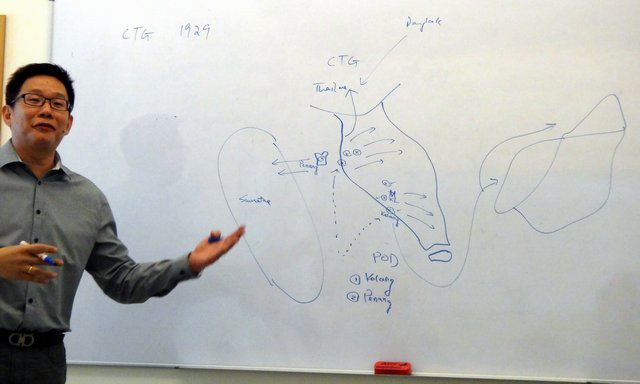 CTG 1929
Bangkok
CTG
Thailand
Penang
Sumatra
Kelang
POD
① Kelang
② Penang